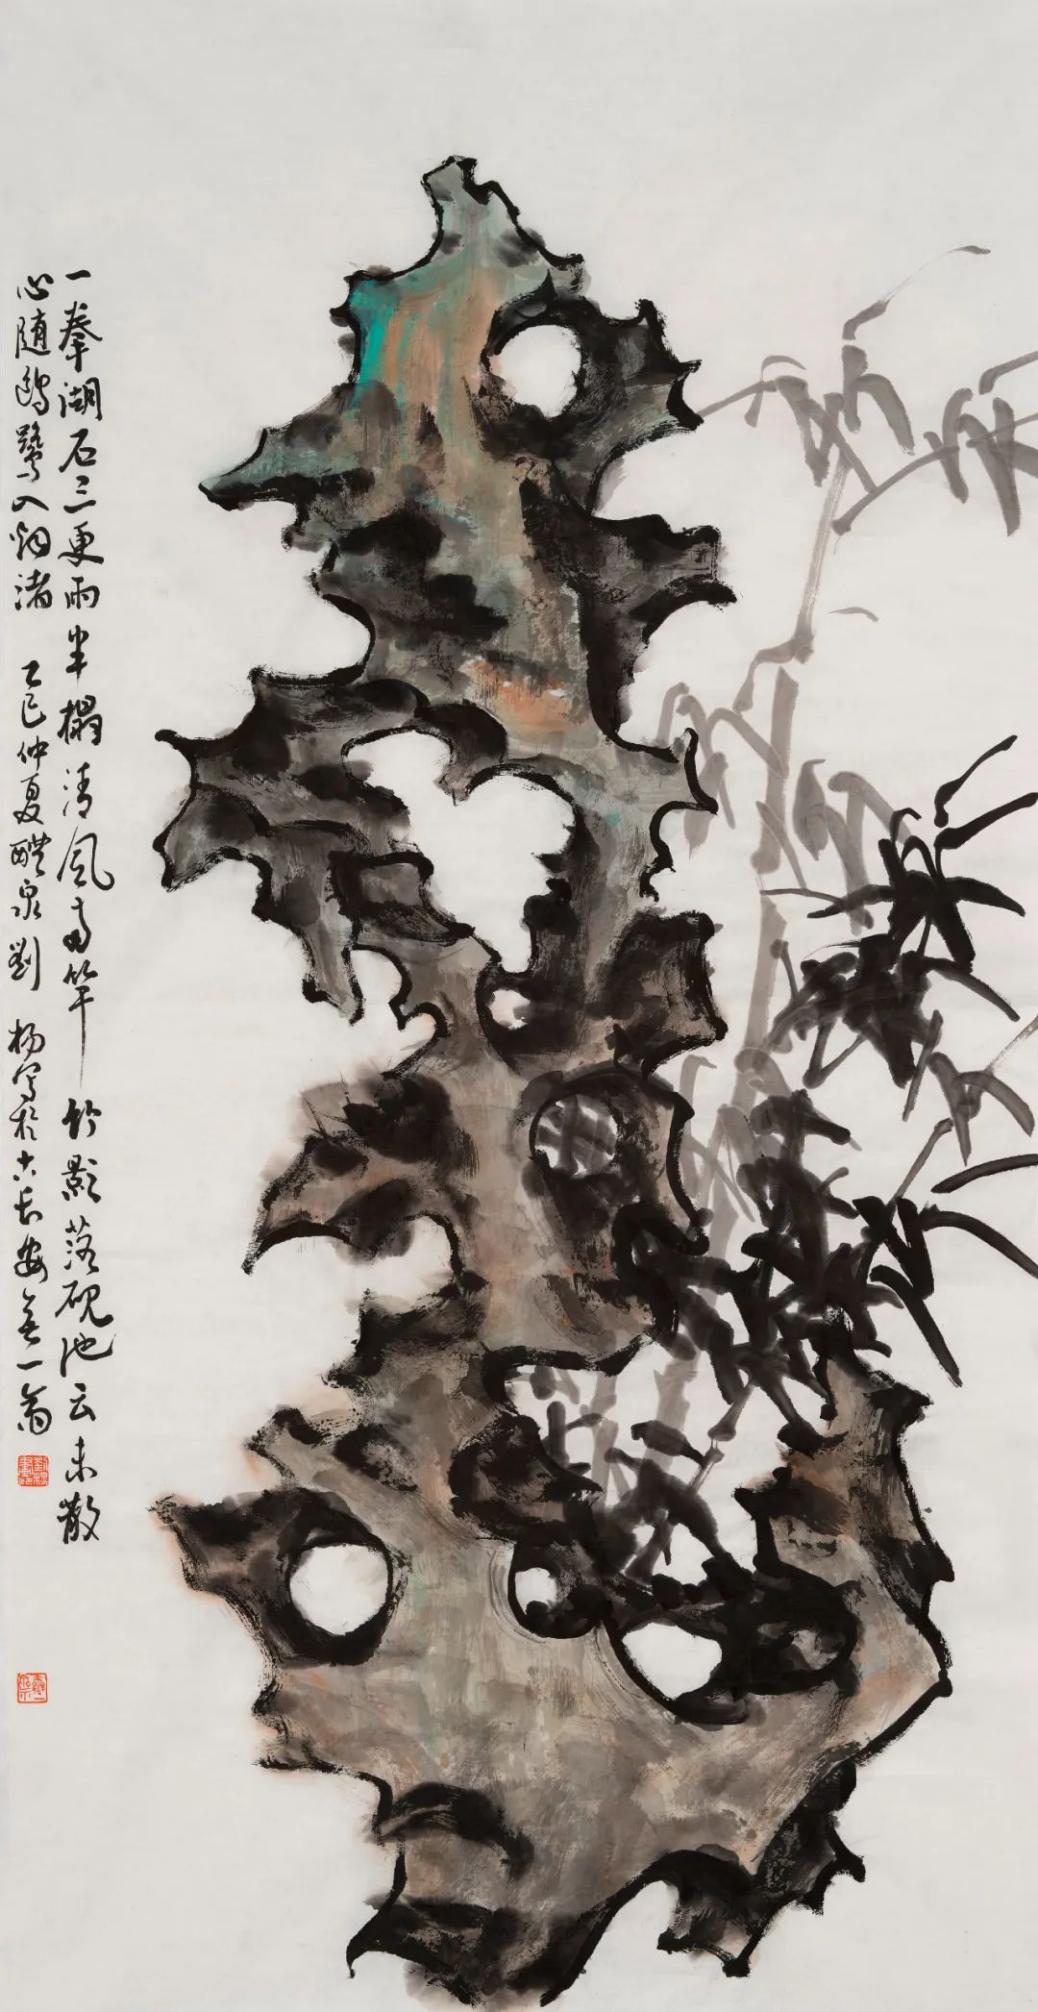 一拳湖石三更雨半榻清风两竿竹影落砚池云未散
心随鸥鹭入烟渚 乙巳仲夏醴泉刘 杨写于古长安 一翁